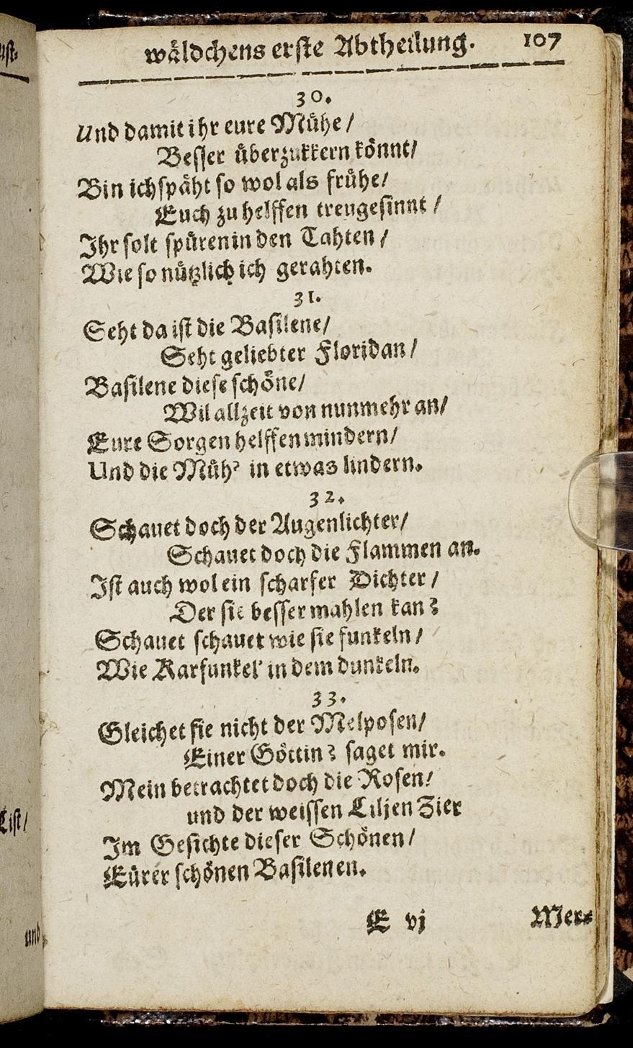 wäldchens erste Abtheilung. 107
30.
Und damit ihr eure Mühe/
Besser überzukkern könnt/
Bin ich späht so wol als frühe/
Euch zu helffen treugesinnt/
Ihr solt spüren in den Tahten/
Wie so nützlich ich gerahten.
31.
Seht da ist die Basilene/
Seht geliebter Floridan/
Basilene diese schöne/
Wil allzeit von nunmehr an/
Eure Sorgen helffen mindern/
Und die Müh' in etwas lindern.
32.
Schauet doch der Augenlichter/
Schauet doch die Flammen an.
Ist auch wol ein scharfer Dichter/
Der sie besser mahlen kan?
Schauet schauet wie sie funkeln/
Wie Karfunkel' in dem dunkeln.
33.
Gleichet sie nicht der Melposen/
Einer Göttin? saget mir.
Mein betrachtet doch die Rosen/
und der weissen Liljen Zier
Im Gesichte dieser Schönen/
Eürer schönen Basilenen.
E vj Mer-
List/
und